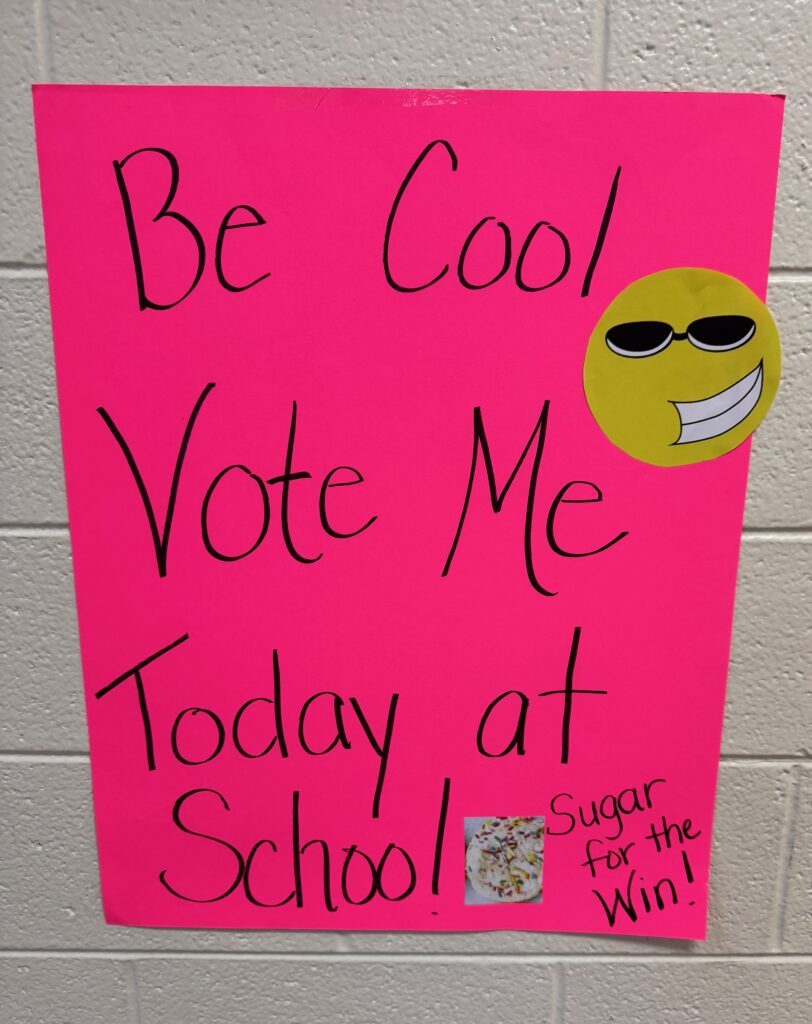 Be Cool
Vote Me
Today at
School!
Sugar
for the
Win!